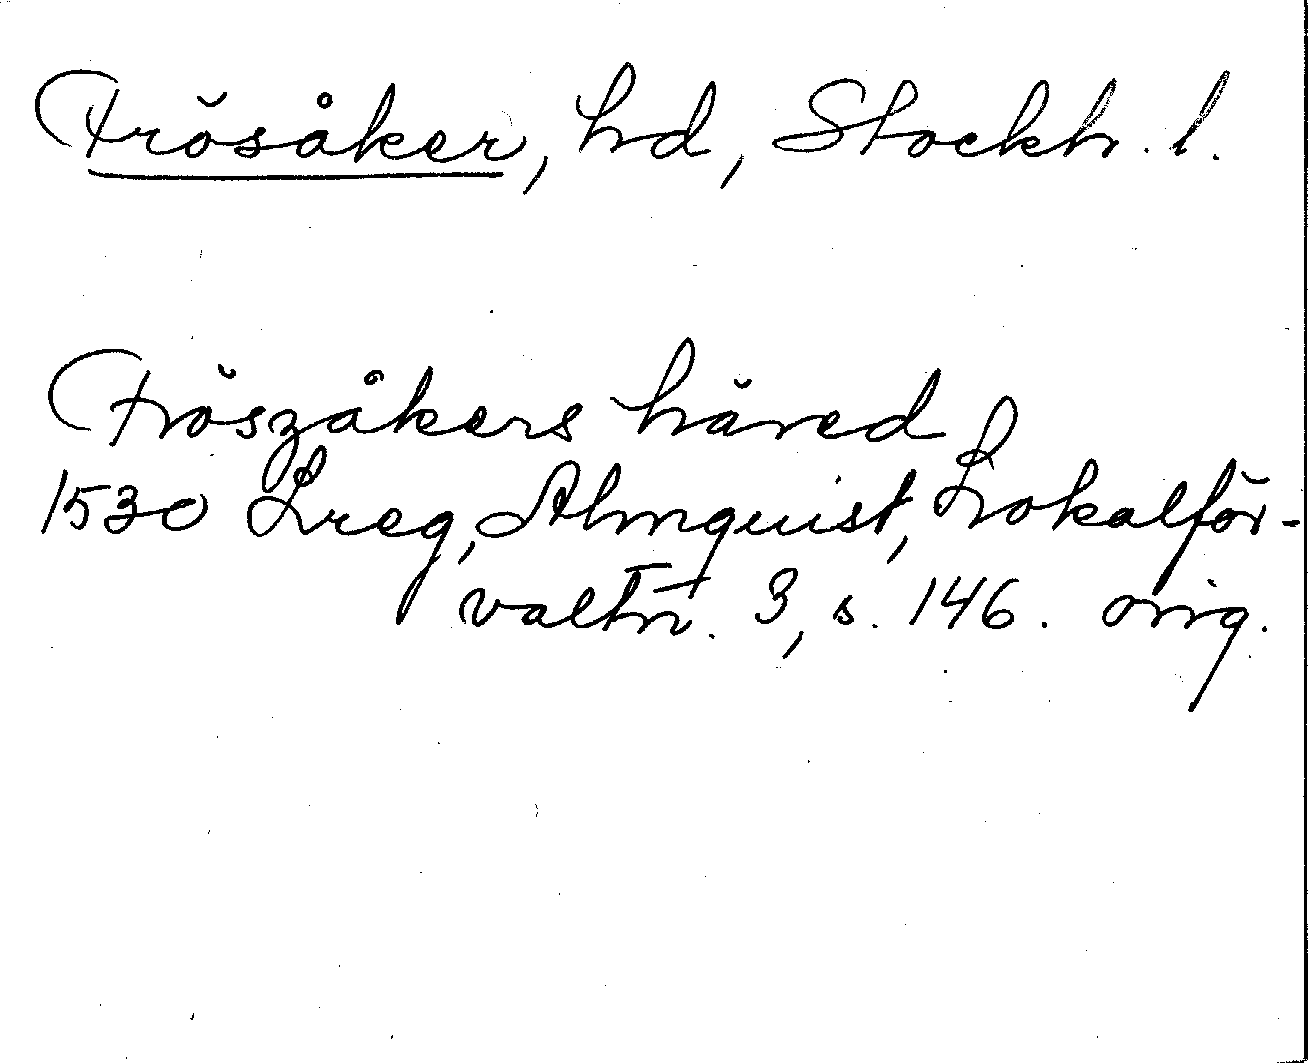 Frösåker, hd, Stockh. l.
Fröszåkers häred
1530 Lreg, Almquist, Lokalför-
valtn. 3, s. 146. orig.